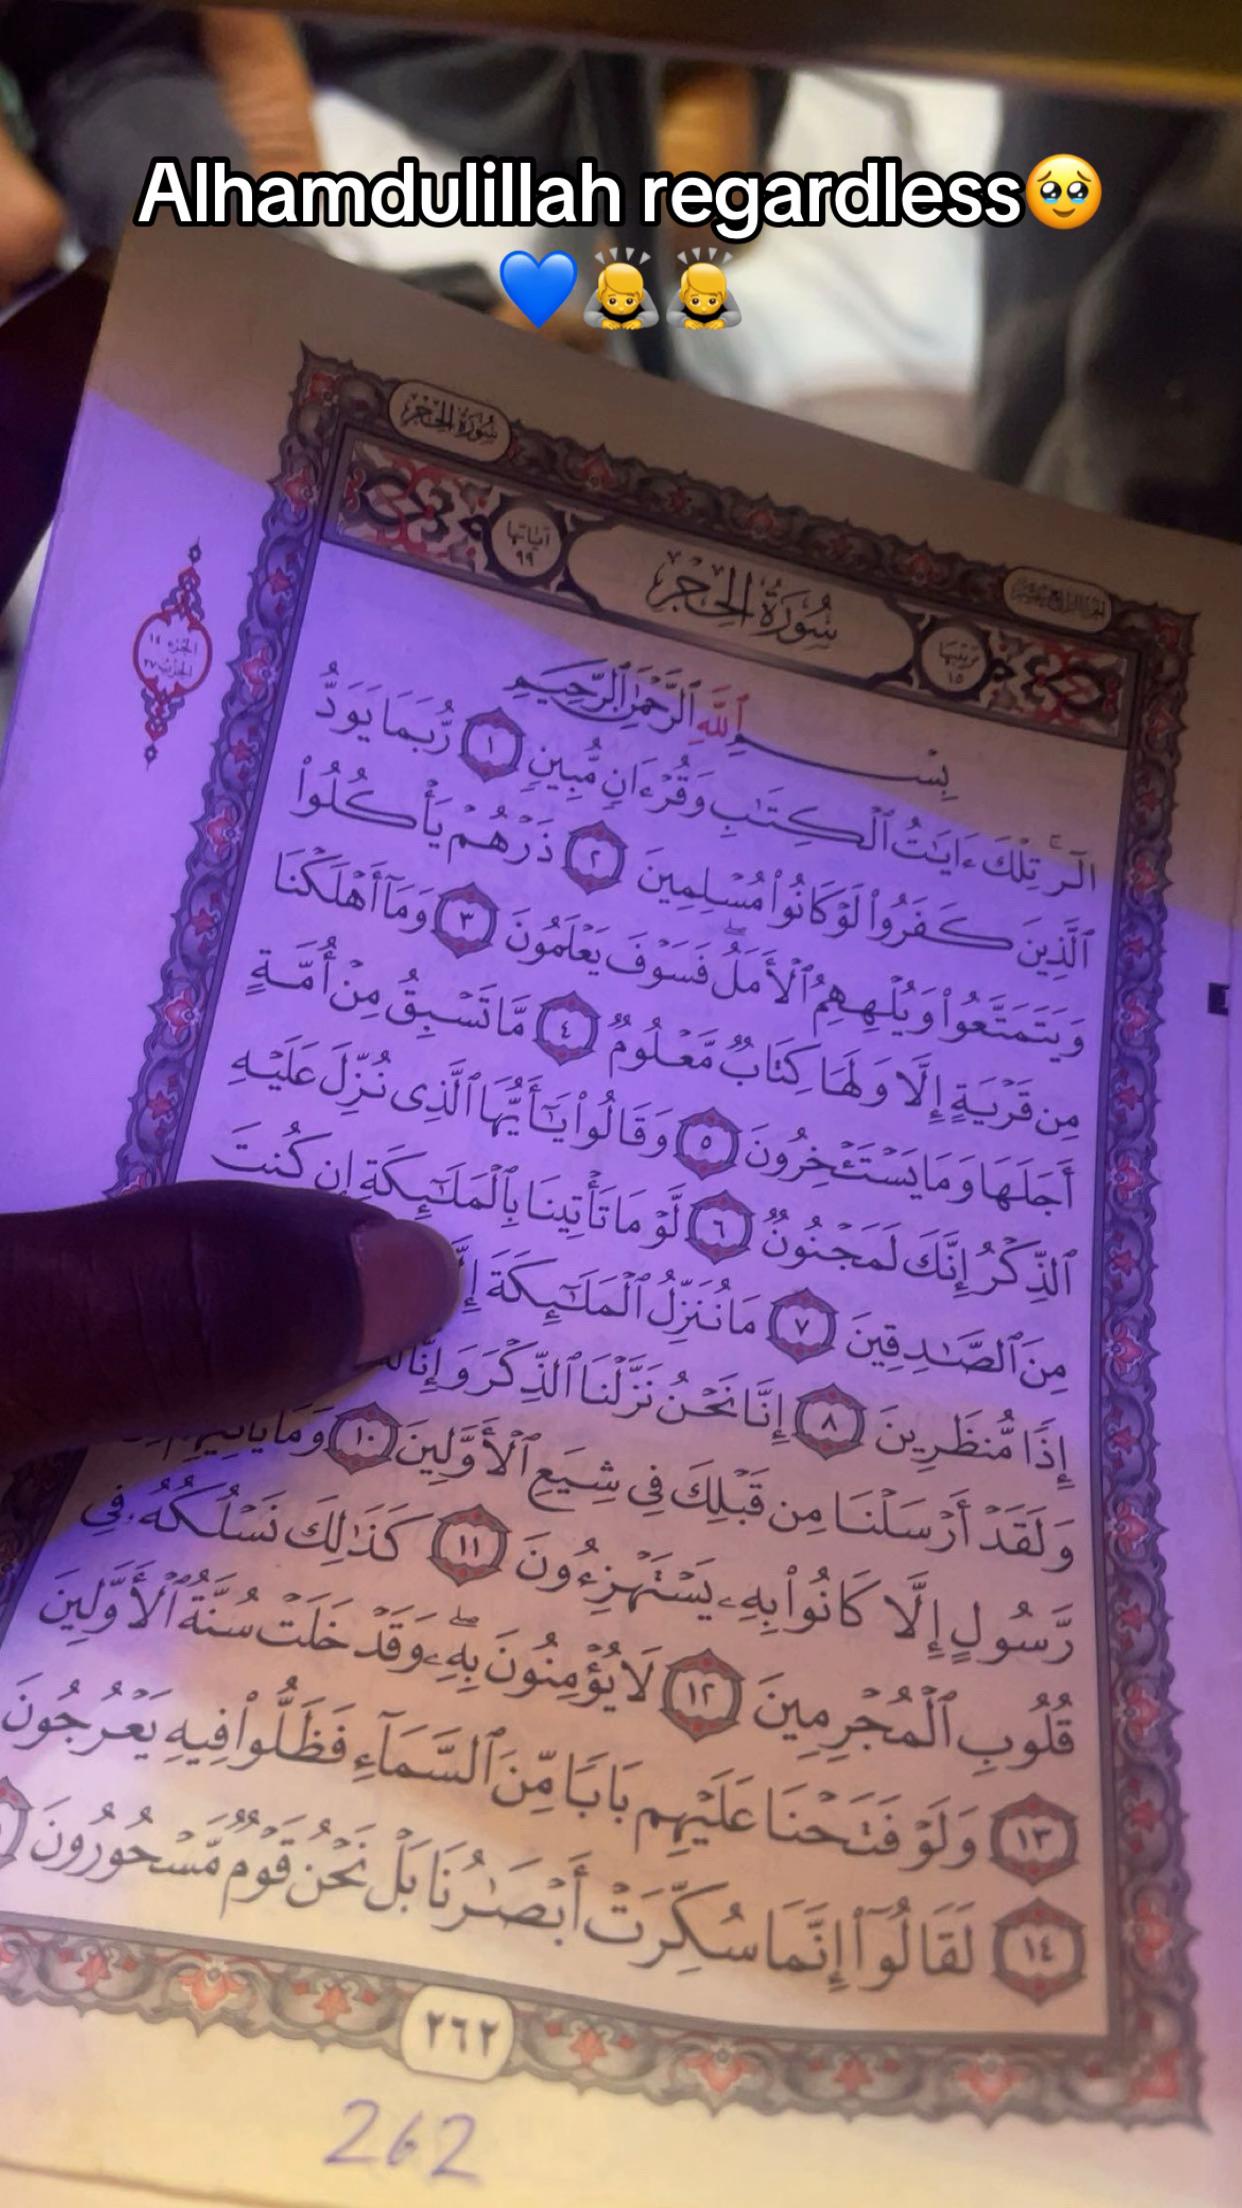 Alhamdulillah regardless🥹
💙🙇🙇
سُورَةُ الحِجر
آياتها
٩٩
سُورَةُ الحِجْرِ
ترتيبها
١٥
الجزء ١٤
الحزب ٢٧
بِسْمِ ٱللَّهِ ٱلرَّحْمَٰنِ ٱلرَّحِيمِ
الٓر ۚ تِلْكَ ءَايَٰتُ ٱلْكِتَٰبِ وَقُرْءَانٍ مُّبِينٍ ١ رُّبَمَا يَوَدُّ
ٱلَّذِينَ كَفَرُوا۟ لَوْ كَانُوا۟ مُسْلِمِينَ ٢ ذَرْهُمْ يَأْكُلُوا۟
وَيَتَمَتَّعُوا۟ وَيُلْهِهِمُ ٱلْأَمَلُ ۖ فَسَوْفَ يَعْلَمُونَ ٣ وَمَآ أَهْلَكْنَا
مِن قَرْيَةٍ إِلَّا وَلَهَا كِتَابٌ مَّعْلُومٌ ٤ مَّا تَسْبِقُ مِنْ أُمَّةٍ
أَجَلَهَا وَمَا يَسْتَـْٔخِرُونَ ٥ وَقَالُوا۟ يَٰٓأَيُّهَا ٱلَّذِى نُزِّلَ عَلَيْهِ
ٱلذِّكْرُ إِنَّكَ لَمَجْنُونٌ ٦ لَّوْ مَا تَأْتِينَا بِٱلْمَلَٰٓئِكَةِ إِن كُنتَ
مِنَ ٱلصَّٰدِقِينَ ٧ مَا نُنَزِّلُ ٱلْمَلَٰٓئِكَةَ
إِذًا مُّنظَرِينَ ٨ إِنَّا نَحْنُ نَزَّلْنَا ٱلذِّكْرَ وَإِنَّا
وَلَقَدْ أَرْسَلْنَا مِن قَبْلِكَ فِى شِيَعِ ٱلْأَوَّلِينَ ١٠ وَمَا يَأْتِيهِم
رَّسُولٍ إِلَّا كَانُوا۟ بِهِۦ يَسْتَهْزِءُونَ ١١ كَذَٰلِكَ نَسْلُكُهُۥ فِى
قُلُوبِ ٱلْمُجْرِمِينَ ١٢ لَا يُؤْمِنُونَ بِهِۦ ۖ وَقَدْ خَلَتْ سُنَّةُ ٱلْأَوَّلِينَ
١٣ وَلَوْ فَتَحْنَا عَلَيْهِم بَابًا مِّنَ ٱلسَّمَآءِ فَظَلُّوا۟ فِيهِ يَعْرُجُونَ
١٤ لَقَالُوٓا۟ إِنَّمَا سُكِّرَتْ أَبْصَٰرُنَا بَلْ نَحْنُ قَوْمٌ مَّسْحُورُونَ
٢٦٢
262